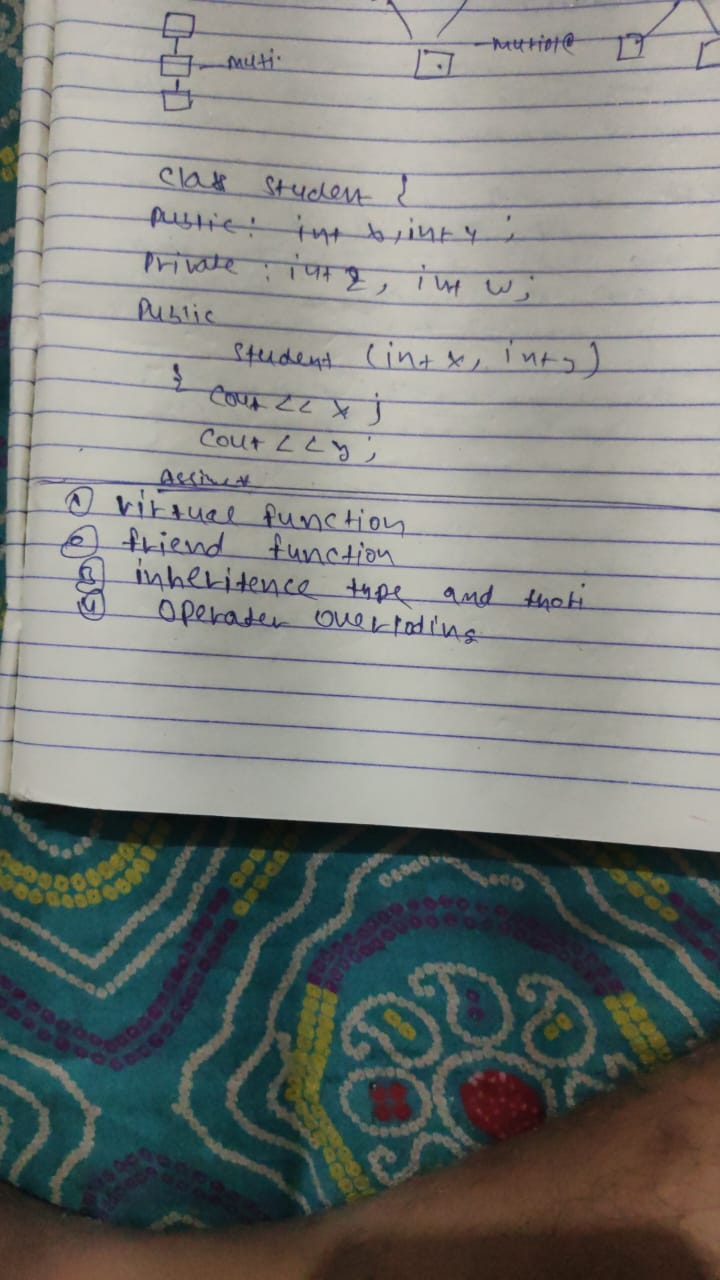 muti.
mutiple
class student {
public: int x, int y ;
Private : int z, int w;
Public
student (int x, int y)
{ cout << x ;
cout << y ;
① virtual function
② friend function
③ inheritence type and
④ Operater overloding